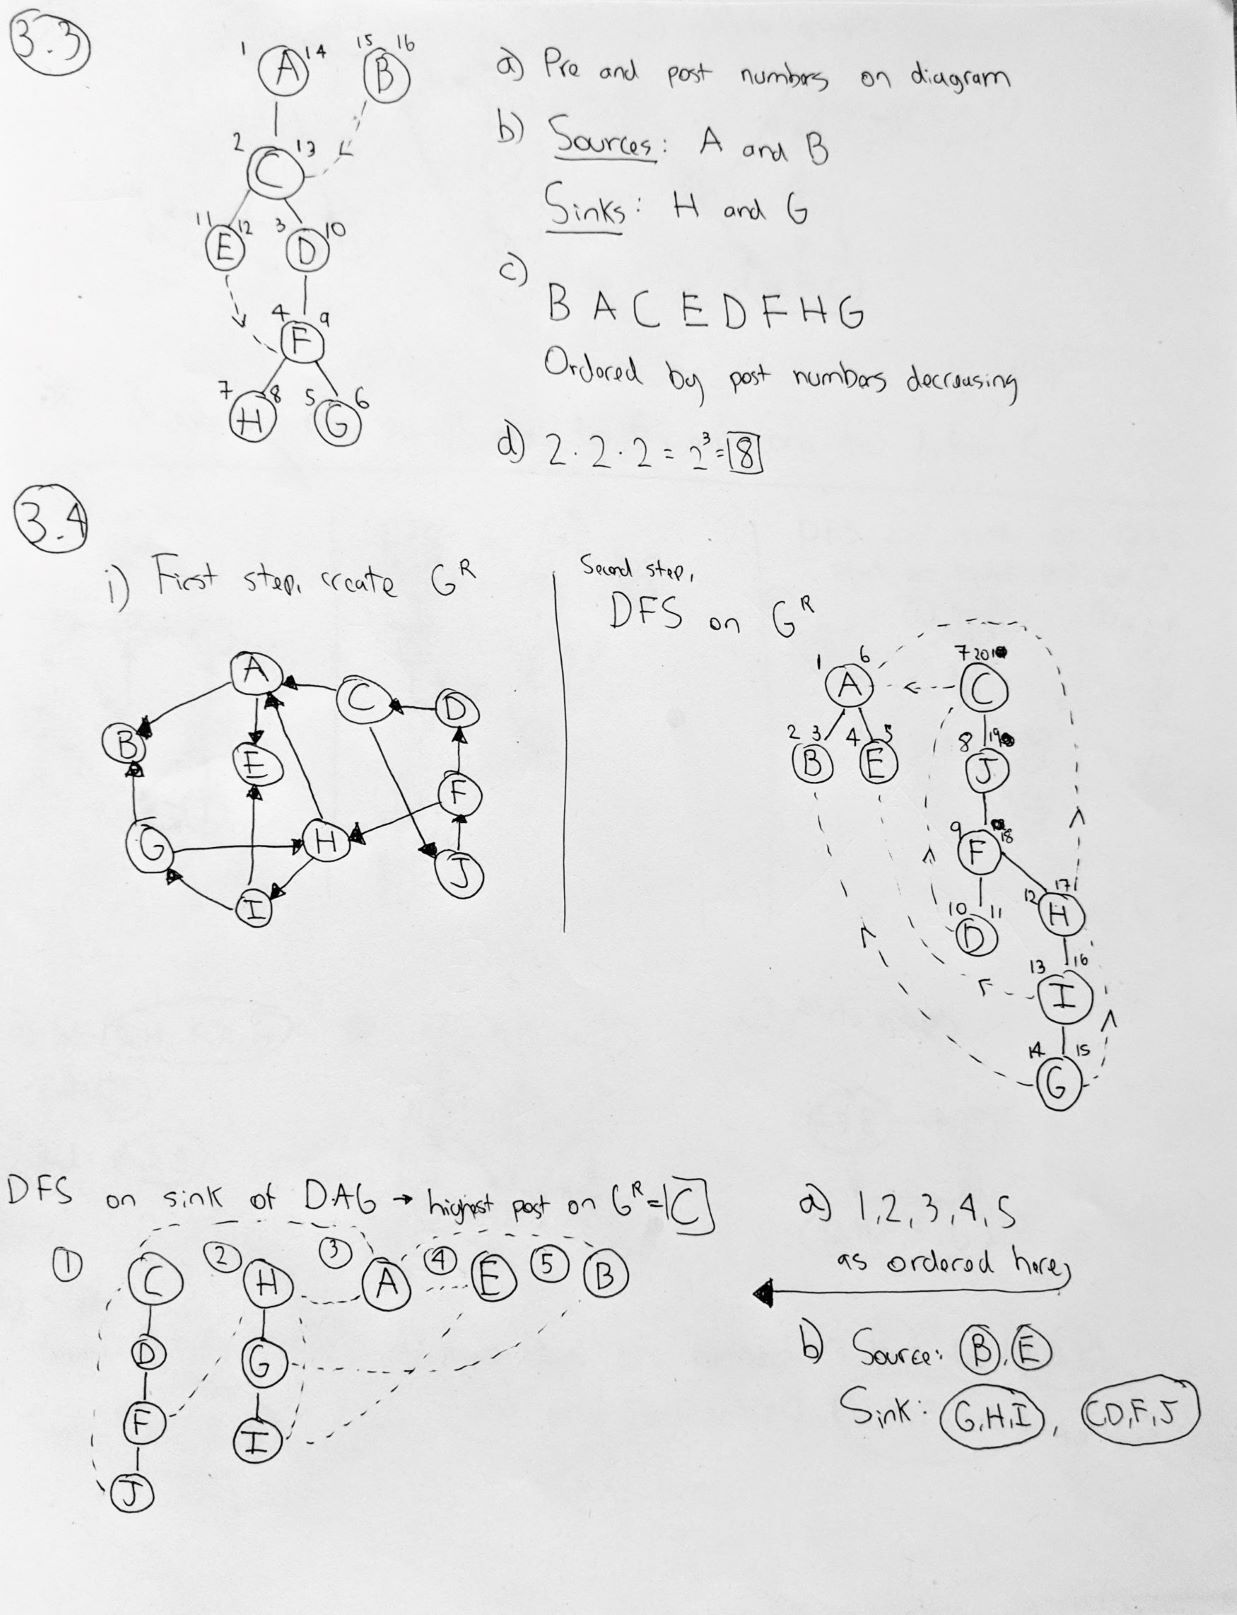 3.3
1 A 14 15 B 16
2 C 13
11 E 12 3 D 10
4 F 9
7 H 8 5 G 6
a) Pre and post numbers on diagram
b) Sources: A and B
Sinks: H and G
c)
B A C E D F H G
Ordered by post numbers decreasing
d) 2 · 2 · 2 = 2³ = 8
3.4
i) First step, create Gᴿ
A
C
D
B
E
F
G
H
J
I
Second step,
DFS on Gᴿ
1 A 6 7 C 20
2 B 3 4 E 5 8 J 19
9 F 18
10 D 11 12 H 17
13 I 16
14 G 15
DFS on sink of DAG → highest post on Gᴿ = C
1 C 2 H 3 A 4 E 5 B
D G
F I
J
a) 1, 2, 3, 4, 5
as ordered here,
b) Source: B, E
Sink: G,H,I, C,D,F,J